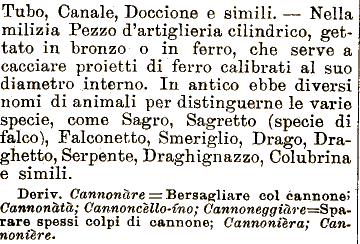 Tubo, Canale, Doccione e simili. — Nella
milizia Pezzo d'artiglieria cilindrico, get-
tato in bronzo o in ferro, che serve a
cacciare proietti di ferro calibrati al suo
diametro interno. In antico ebbe diversi
nomi di animali per distinguerne le varie
specie, come Sagro, Sagretto (specie di
falco), Falconetto, Smeriglio, Drago, Dra-
ghetto, Serpente, Draghignazzo, Colubrina
e simili.
Deriv. Cannonàre = Bersagliare col cannone;
Cannonàtà; Cannoncèllo-íno; Cannoneggiàre=Spa-
rare spessi colpi di cannone; Cannonièra; Can-
nonière.